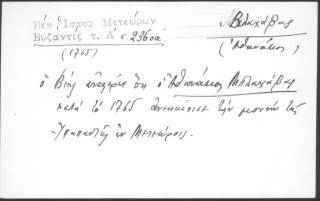 Βέη, Ἱστορ. Μετεώρων
Βυζαντὶς τ. Α΄ σ. 236οα.
(1765)
Μπλαχάβας
(Ἀθανάσιος)
ὁ Βέης ἀναφέρει ὅτι ὁ Ἀθανάσιος Μπλαχάβας
κατὰ τὸ 1765 ἀνεκαίνισε τὴν μονὴν τῆς
Ὑπαπαντῆς ἐν Μετεώροις.